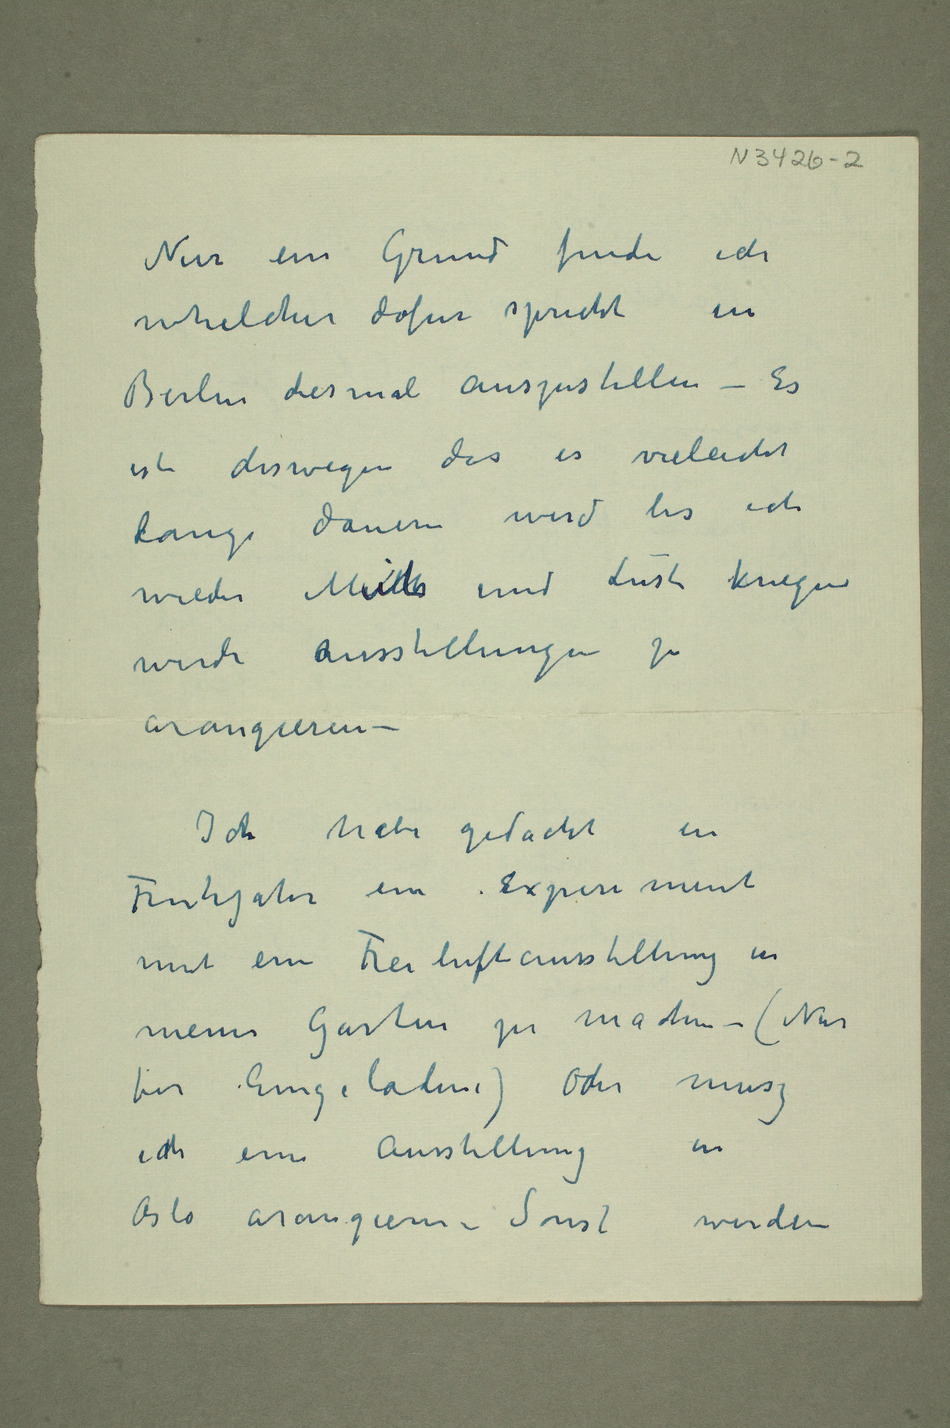 N 3426-2
Nur ein Grund finde ich
whelcher dafur spricht in
Berlin diesmal auszustellen – Es
ist deswegen das es vieleicht
lange dauern wird bis ich
wieder und Lust kriegen
werde Ausstellungen zu
arangieren –
Ich habe gedacht in
Fruhjahr ein Experiment
mit ein Freiluftausstellung in
meine Garten zu machen – (Nur
fur Eingeladene) Oder musz
ich eine Ausstellung in
Oslo arangieren – Sonst werden